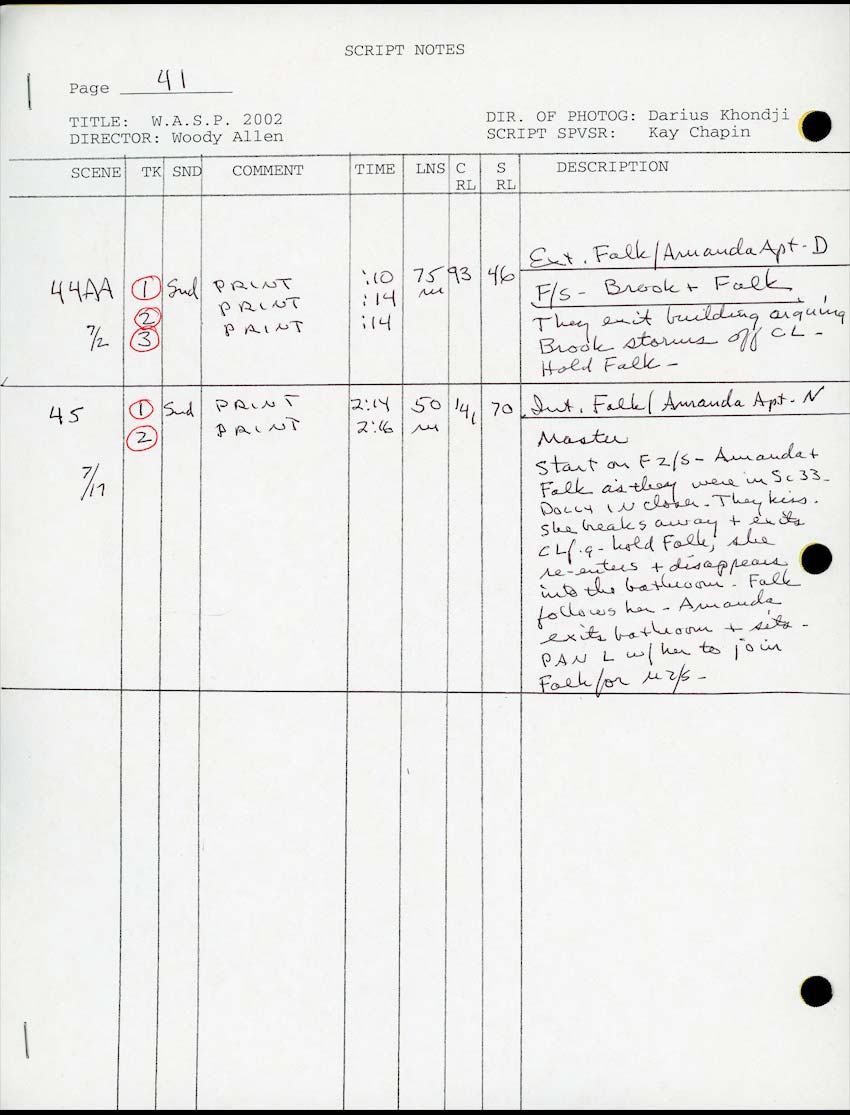 SCRIPT NOTES
Page 41
TITLE: W.A.S.P. 2002
DIRECTOR: Woody Allen
DIR. OF PHOTOG: Darius Khondji
SCRIPT SPVSR: Kay Chapin
SCENE TK SND COMMENT TIME LNS C RL S RL DESCRIPTION
44AA 1 Snd PRINT :10 75 93 46
2 PRINT :14 m
7/2 3 PRINT :14
Ext. Falk/Amanda Apt - D
F/S - Brook + Falk
They exit building arguing,
Brook storms off CL -
Hold Falk -
45 1 Snd PRINT 2:14 50 141 70
2 PRINT 2:16 m
7/17
Int. Falk/Amanda Apt - N
Master
Start on F 2/S - Amanda +
Falk as they were in Sc 33 -
DOLLY IN closer. They kiss.
She breaks away + exits
CL f.g. - hold Falk, she
re-enters + disappears
into the bathroom - Falk
follows her - Amanda
exits bathroom + sits -
PAN L w/ her to join
Falk for M 2/S -